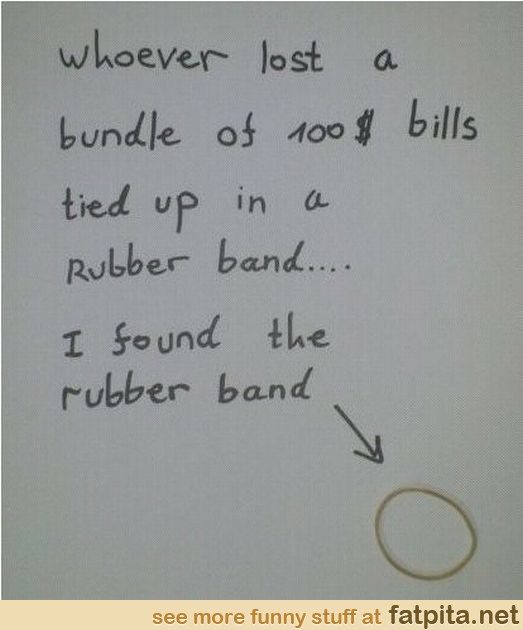 whoever lost a
bundle of 100$ bills
tied up in a
Rubber band....
I found the
rubber band
see more funny stuff at fatpita.net